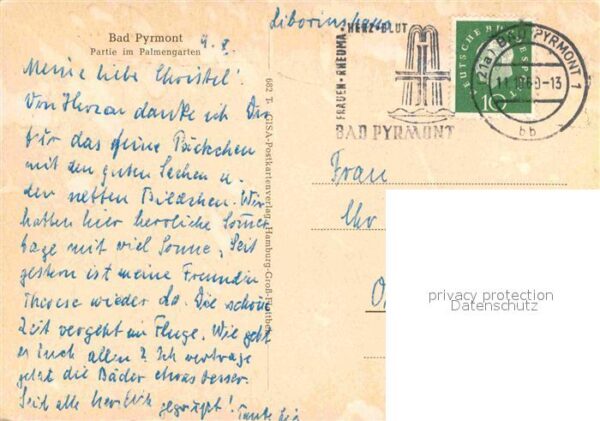 Bad Pyrmont
Partie im Palmengarten
Meine liebe Christel!
Von Herzen danke ich Dir
für das feine Päckchen
mit den guten Sachen u.
den netten Bildchen. Wir
hatten hier herrliche Sommer
tage mit viel Sonne, Seit
gestern ist meine Freundin
Therese wieder da. Die schöne
Zeit vergeht im Fluge. Wie geht
es Euch allen? Ich vertrage
jetzt die Bäder etwas besser.
Seid alle herzlich gegrüsst!
Tante
682 T. CISA-Postkartenverlag, Hamburg-Groß-Flottbek
FRAUEN · RHEUMA · HERZ · BLUT
BAD PYRMONT
DEUTSCHE BUNDESPOST
10
(21a) BAD PYRMONT 1
-13
bb
Frau
Chr
privacy protection
Datenschutz